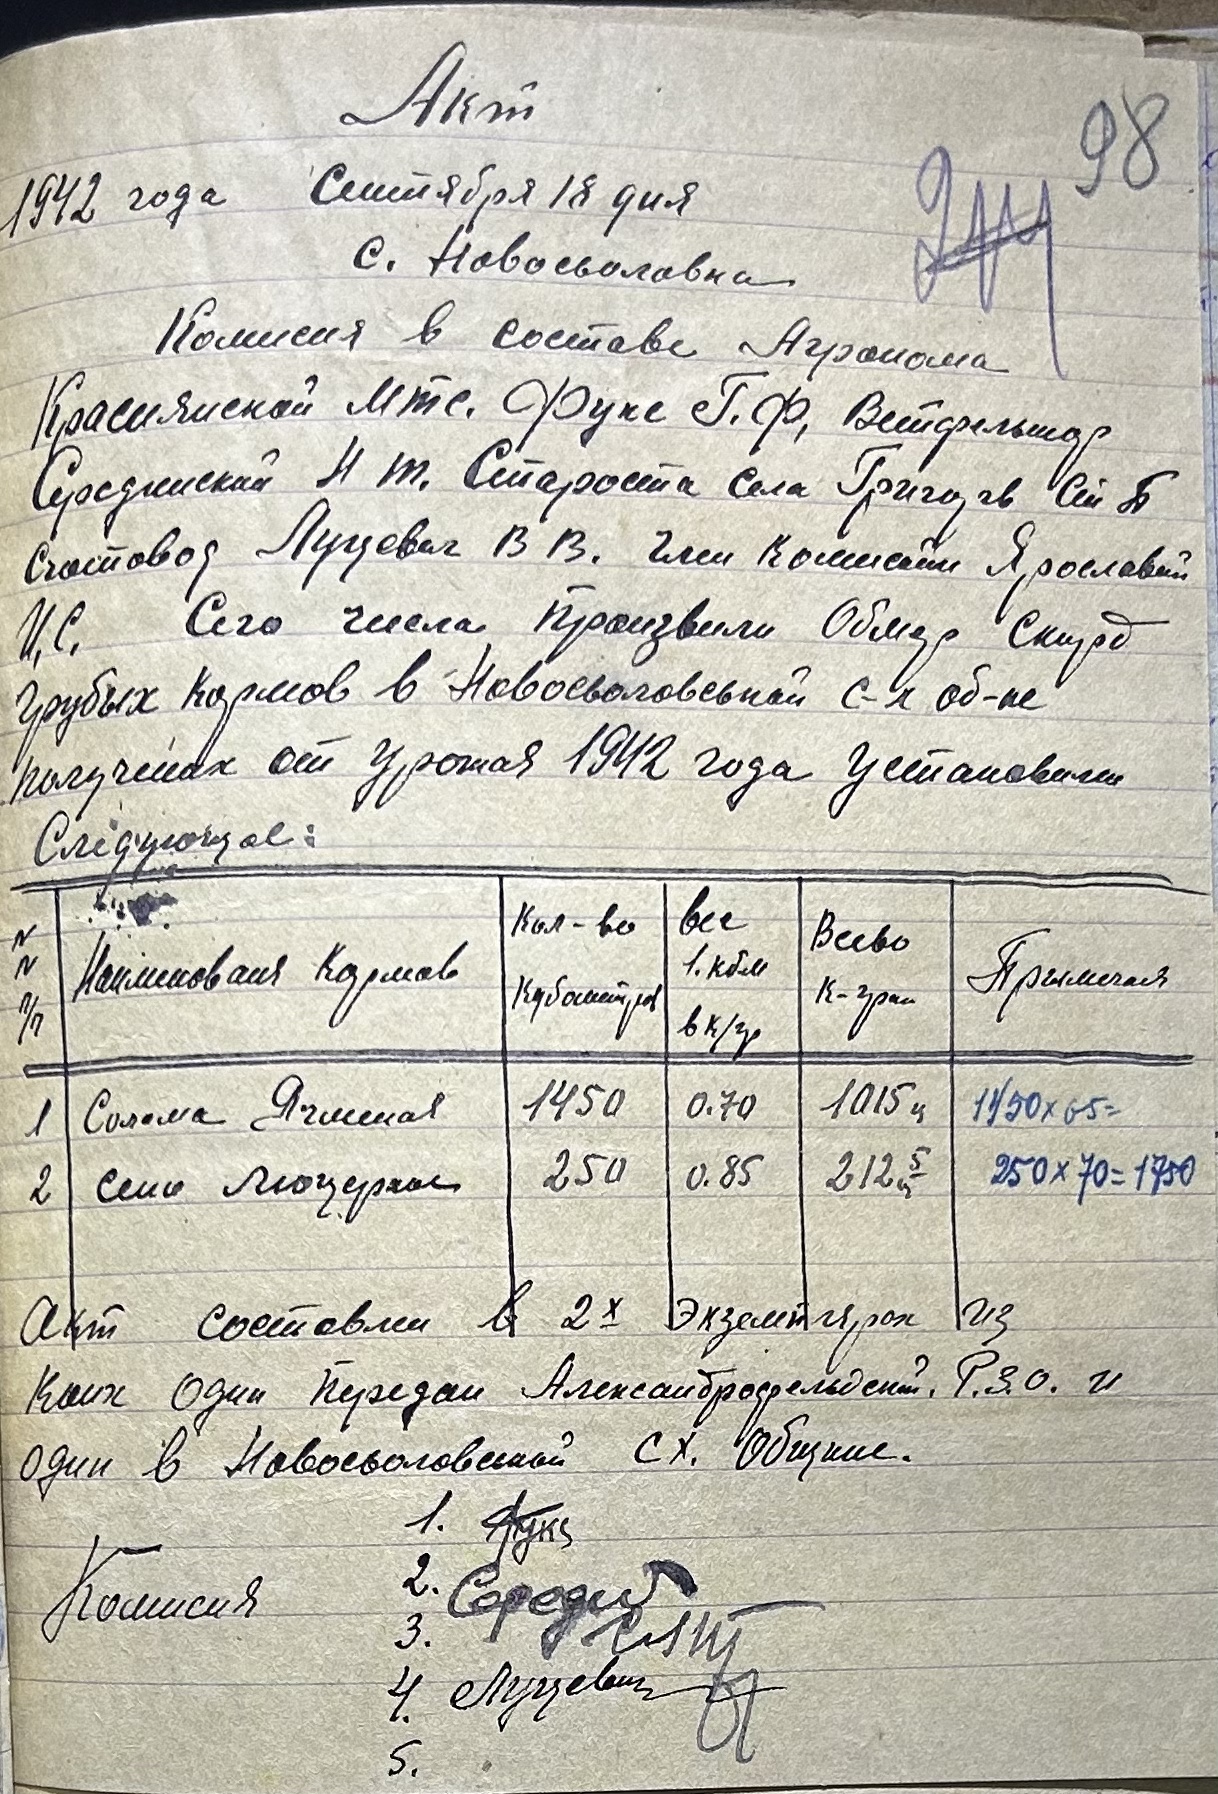 Акт
98
1942 года Сентября 18 дня
с. Новосьоловка
Комисия в составе Агронома
Краснянской мтс. Фукс Г.Ф, Ветфельшар
Серединский Н т. Староста села Григорев
счотовод Луцевич В В. член комисии Ярославий
И.С. Сего числа произвели Обмер Скирд
грубых кормов в Новосьоловській с-х об-не
получених от урожая 1942 года установили
Слідующое:
N N п/п
Наименованя Кормов
Кол-во Кубометров
вес 1. кбм в к/гр
Всьво к-грам
Примечая
1 Солома Ячменая 1450 0.70 1015 ц 1450 х 65=
2 сено люцерное 250 0.85 212 5 ц 250 х 70 = 1750
Акт составлен в 2х Экземплярах из
коих один передан Александрофельдский. Р.З.О. и
один в Новосьоловській С Х. Общине.
1. Фукс
Комисия
2. Середи
3.
4. Луцевич
5.